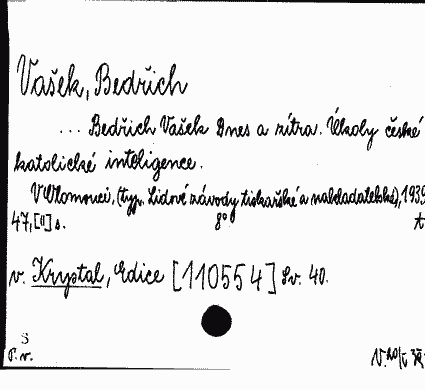 Vašek, Bedřich
... Bedřich Vašek Dnes a zítra. Úkoly české
katolické inteligence.
V Olomouci, (typ. Lidové závody tiskařské a nakladatelské), 1939
47, [1] s. 8°
v. Krystal, Edice [110554] Sv. 40.
S
P. v.